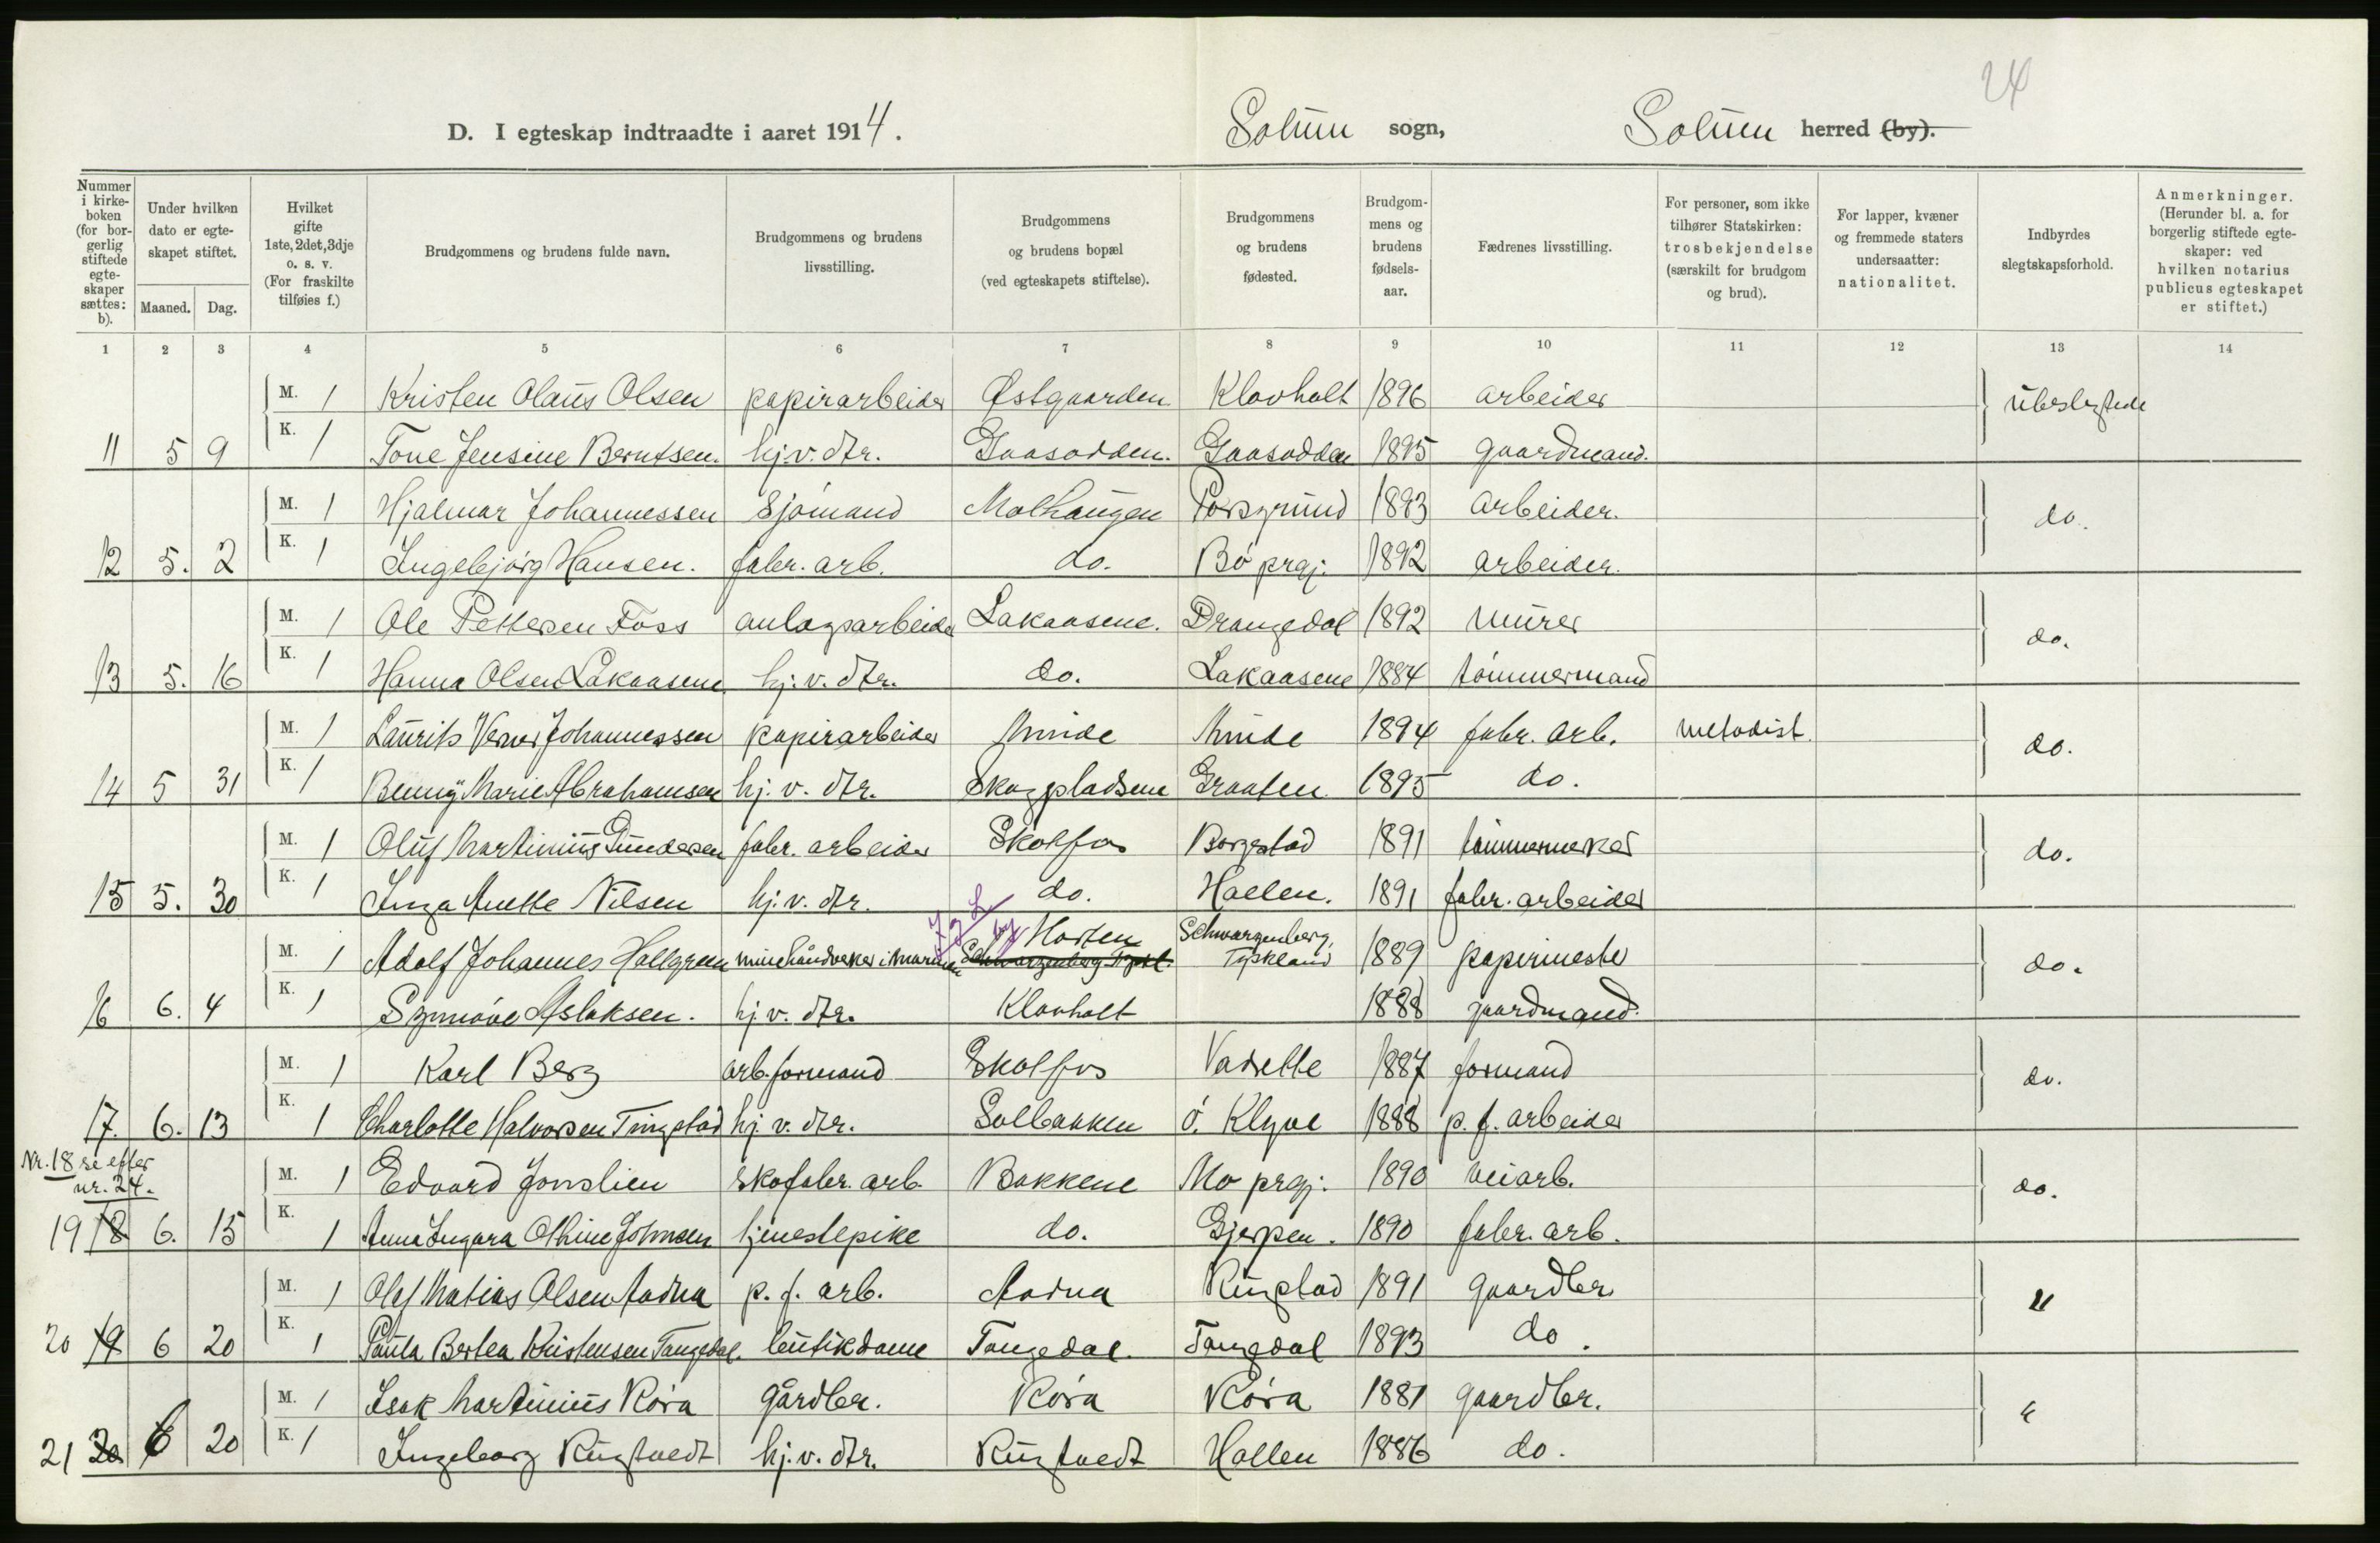 24
D. I egteskap indtraadte i aaret 1914. Solum sogn, Solum herred (by).
Nummer i kirkeboken (for borgerlig stiftede egteskaper sættes: b).
Under hvilken dato er egteskapet stiftet.
Maaned. Dag.
Hvilket gifte 1ste, 2det, 3dje o. s. v. (For fraskilte tilføies f.)
Brudgommens og brudens fulde navn.
Brudgommens og brudens livsstilling.
Brudgommens og brudens bopæl (ved egteskapets stiftelse).
Brudgommens og brudens fødested.
Brudgommens og brudens fødselsaar.
Fædrenes livsstilling.
For personer, som ikke tilhører Statskirken: trosbekjendelse (særskilt for brudgom og brud).
For lapper, kvæner og fremmede staters undersaatter: nationalitet.
Indbyrdes slegtskapsforhold.
Anmerkninger. (Herunder bl. a. for borgerlig stiftede egteskaper: ved hvilken notarius publicus egteskapet er stiftet.)
1 2 3 4 5 6 7 8 9 10 11 12 13 14
M. 1 Kristen Olaus Olsen papirarbeider Østgaarden Klovholt 1896 arbeider ubeslegtede
11 5 9 K. 1 Tone Jensine Berntsen. hj.v. dtr. Gaasodden. Gaasodden 1895 gaardmand.
M. 1 Hjalmar Johannessen Sjömand Molhaugen Porsgrund 1893 arbeider. do.
12 5. 2 K. 1 Ingebjörg Hansen. fabr. arb. do. Bö prgj. 1892 arbeider.
M. 1 Ole Pettersen Foss anlægsarbeider Lakaasene. Drangedal 1892 murer do.
13 5. 16 K. 1 Hanna Olsen Lakaasene hj. v. dtr. do. Lakaasene 1884 tömmermand
M. 1 Laurits Verner Johannessen papirarbeider Minde Minde 1894 fabr. arb. metodist. do.
14 5 31 K. 1 Benny Marie Abrahamsen hj. v. dtr. Skogpladsene Graaten 1895 do.
M. 1 Oluf Martinius Gundersen fabr. arbeider Skotfos Borgestad 1891 tömmermerker do.
15 5. 30 K. 1 Inga Anette Nilsen hj. v. dtr. do. Hællen. 1891 fabr. arbeider
by Horten Schwarzenberg,
M. 1 Adolf Johannes Hallgren minehåndverker i marinen Schwarzenberg Tyskl. Tyskland 1889 papirmester do.
16 6. 4 K. 1 Synnöve Aslaksen. hj. v. dtr. Klovholt 1888 gaardmand.
M. 1 Karl Berg arb.formand Skotfos Vadrette 1887 formand do.
17. 6. 13 K. 1 Charlotte Halvorsen Tingstad hj. v. dtr. Solbakken ö. Klyve 1888 p. f. arbeider
Nr. 18 se efter
nr. 24.
M. 1 Edvard Jonslien skofabr. arb. Bakkene Mo prgj. 1890 veiarb. do.
19 18 6. 15 K. 1 Anna Ingara Othine Johnsen tjenestepike do. Gjerpen. 1890 fabr. arb.
M. 1 Olaf Matias Olsen Aadna p. f. arb. Aadna Ringstad 1891 gaardbr "
20 19 6 20 K. 1 Paula Bertea Kristensen Tangedal. butikdame Tangedal. Tangedal 1893 do.
M. 1 Isak Martinius Röra gårdbr. Röra Röra 1881 gaardbr. "
21 20 6 20 K. 1 Ingeborg Rugtvedt hj. v. dtr. Rugtvedt Hollen 1886 do.